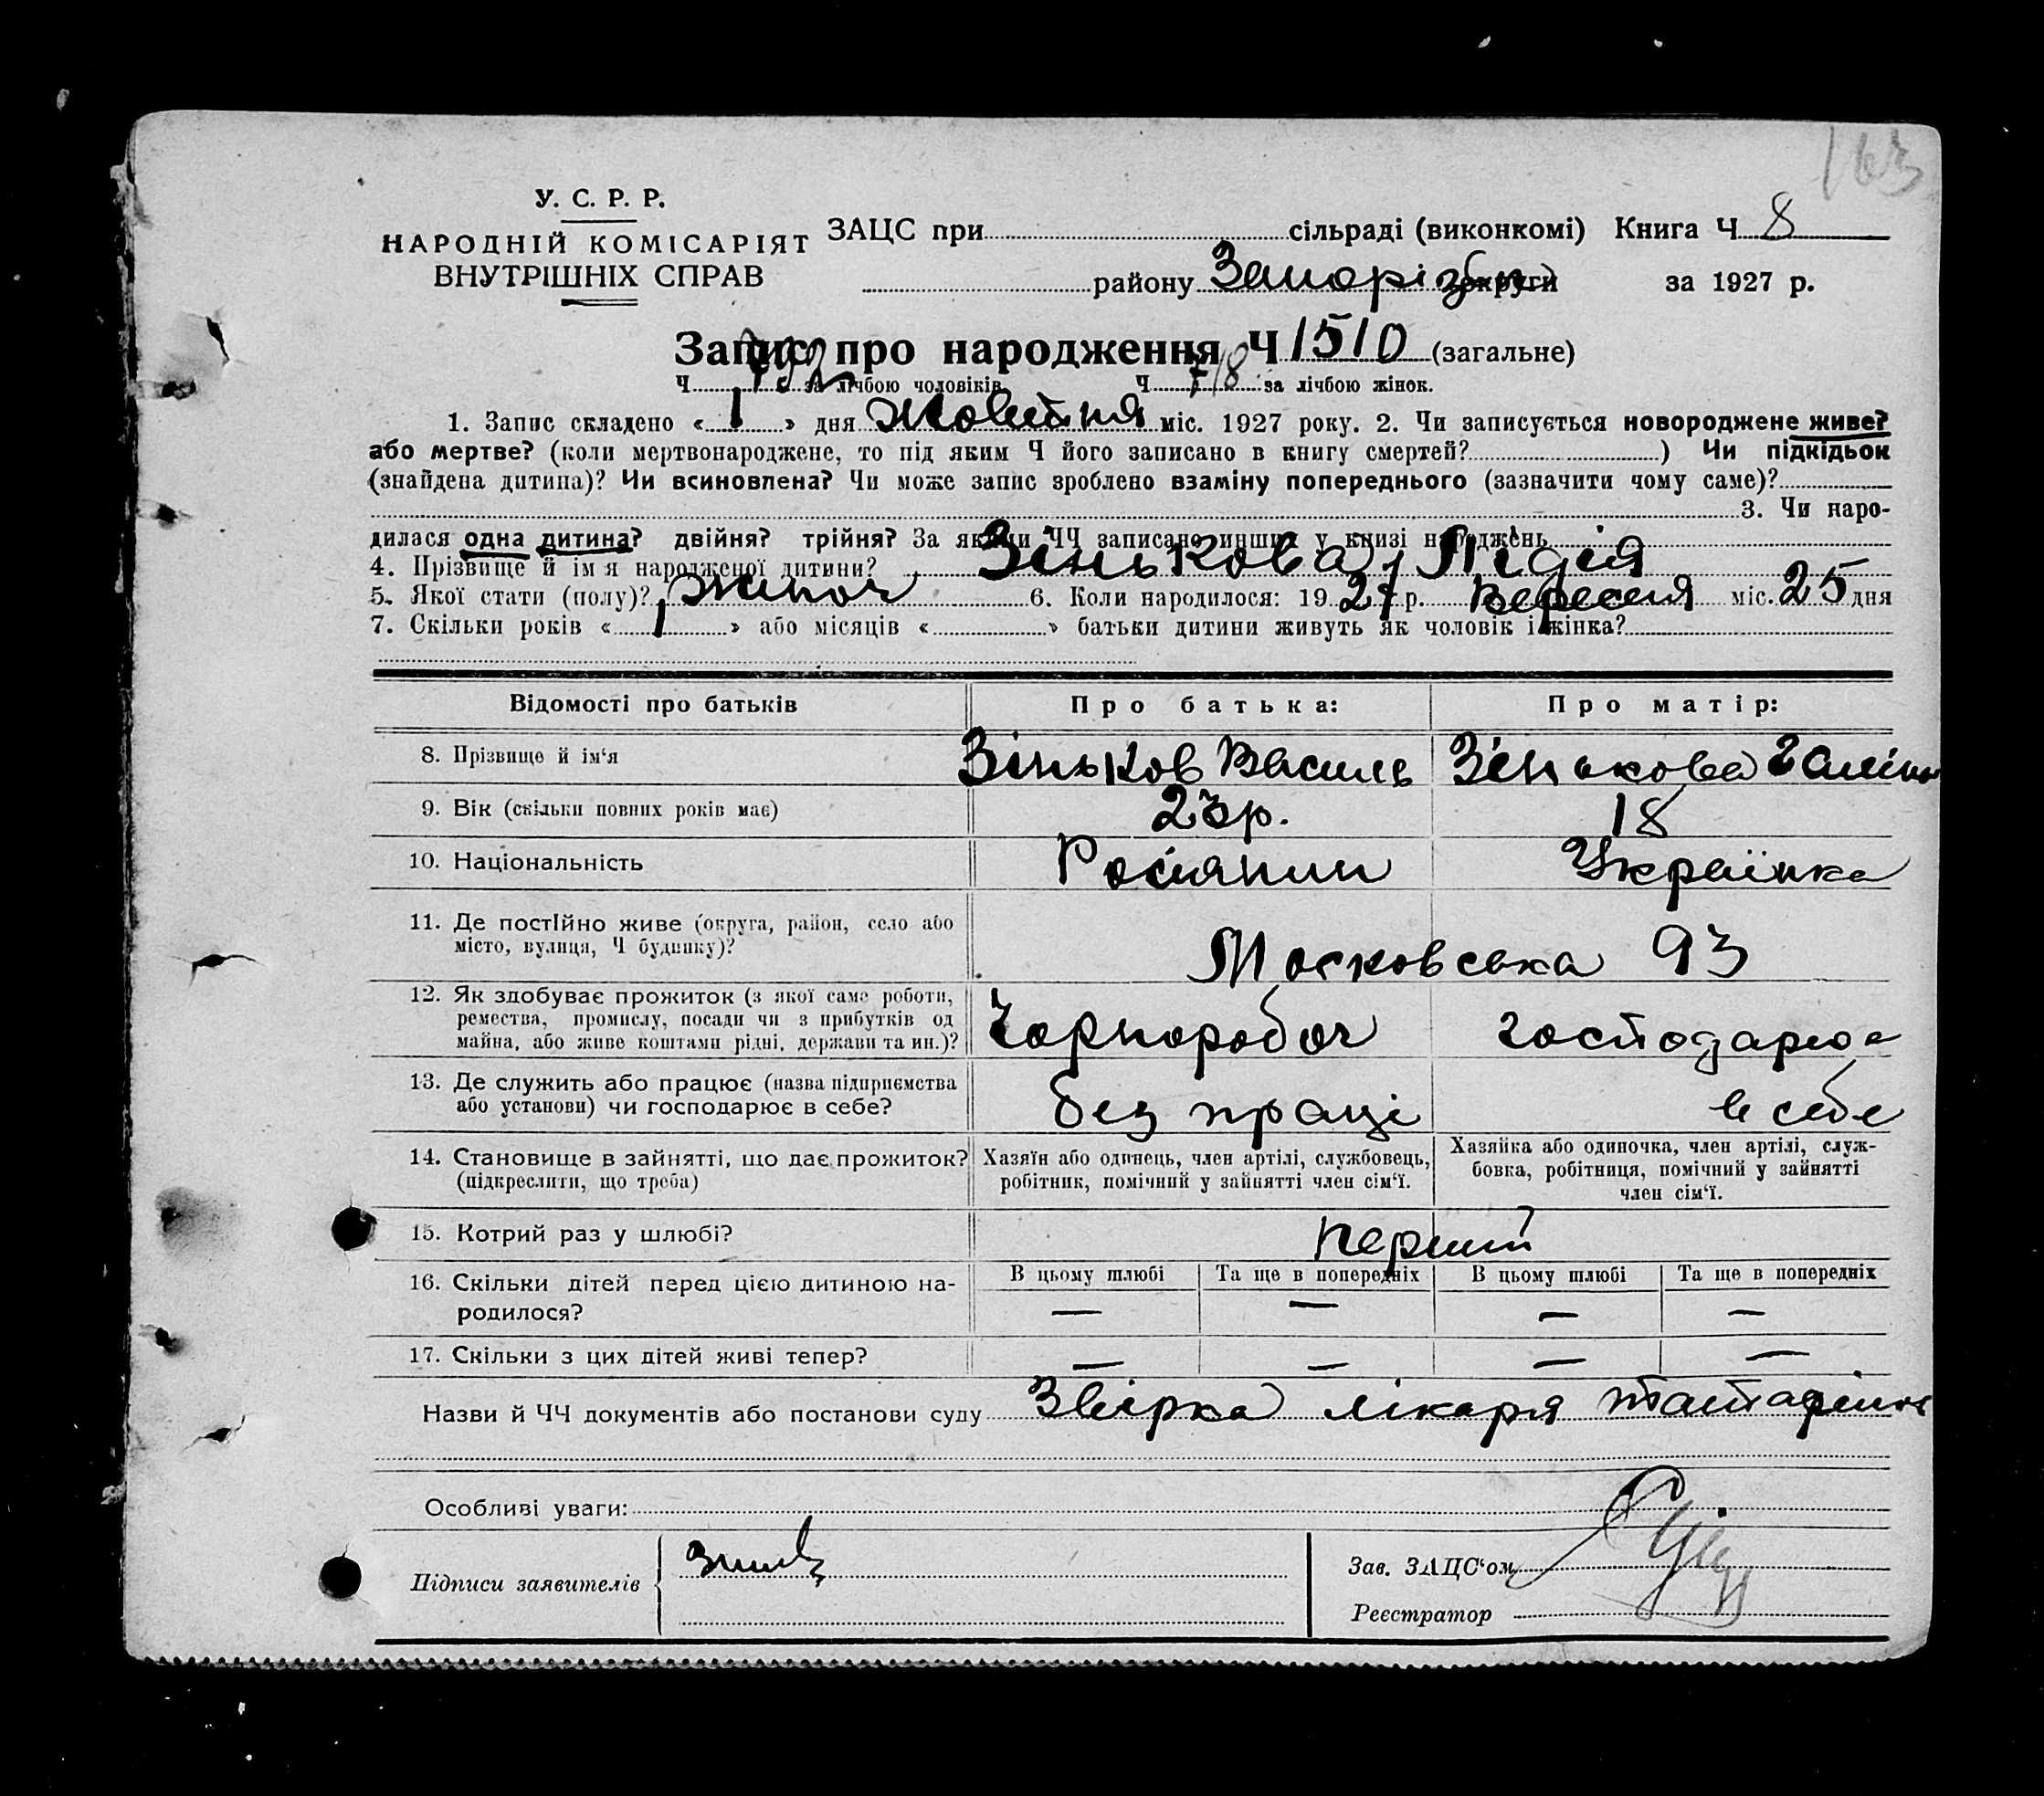 163
У. С. Р. Р.
НАРОДНІЙ КОМІСАРІЯТ
ВНУТРІШНІХ СПРАВ
ЗАЦС при сільраді (виконкомі) Книга Ч 8
району Запорізьк округи за 1927 р.
Запис про народження Ч 1510 (загальне)
Ч 792 за лічбою чоловіків Ч 718 за лічбою жінок.
1. Запис складено « 1 » дня Жовтня міс. 1927 року. 2. Чи записується новороджене живе?
або мертве? (коли мертвонароджене, то під яким Ч його записано в книгу смертей? ) Чи підкідьок
(знайдена дитина)? Чи всиновлена? Чи може запис зроблено взаміну попереднього (зазначити чому саме)?
3. Чи наро-
дилася одна дитина? двійня? трійня? За якими ЧЧ записано инших у книзі народжень
4. Прізвище й ім я народженої дитини? Зінькова, Лідія
5. Якої стати (полу)? Жіноч 6. Коли народилося: 19 27 р. Вересня міс. 25 дня
7. Скільки років « 1 » або місяців « » батьки дитини живуть як чоловік і жінка?
Відомості про батьків Про батька: Про матір:
8. Прізвище й ім‘я Зіньков Василь Зінькова Галіна
9. Вік (скільки повних років має) 23р. 18
10. Національність Росіянин Українка
11. Де постійно живе (округа, район, село або
місто, вулиця, Ч будинку)? Московська 93
12. Як здобуває прожиток (з якої саме роботи,
ремества, промислу, посади чи з прибутків од
майна, або живе коштами рідні, держави та ин.)? Чорноробоч господарює
13. Де служить або працює (назва підприємства
або установи) чи господарює в себе? без праці в себе
14. Становище в зайнятті, що дає прожиток?
(підкреслити, що треба)
Хазяїн або одинець, член артілі, службовець,
робітник, помічний у зайнятті член сім‘ї.
Хазяйка або одиночка, член артілі, служ-
бовка, робітниця, помічний у зайнятті
член сім‘ї.
15. Котрий раз у шлюбі? перший
В цьому шлюбі Та ще в попередніх В цьому шлюбі Та ще в попередніх
16. Скільки дітей перед цією дитиною на-
родилося? — — — —
17. Скільки з цих дітей живі тепер? — — — —
Назви й ЧЧ документів або постанови суду Звірка лікаря
Особливі уваги:
Підписи заявителів
Зав. ЗАЦС‘ом
Реєстратор